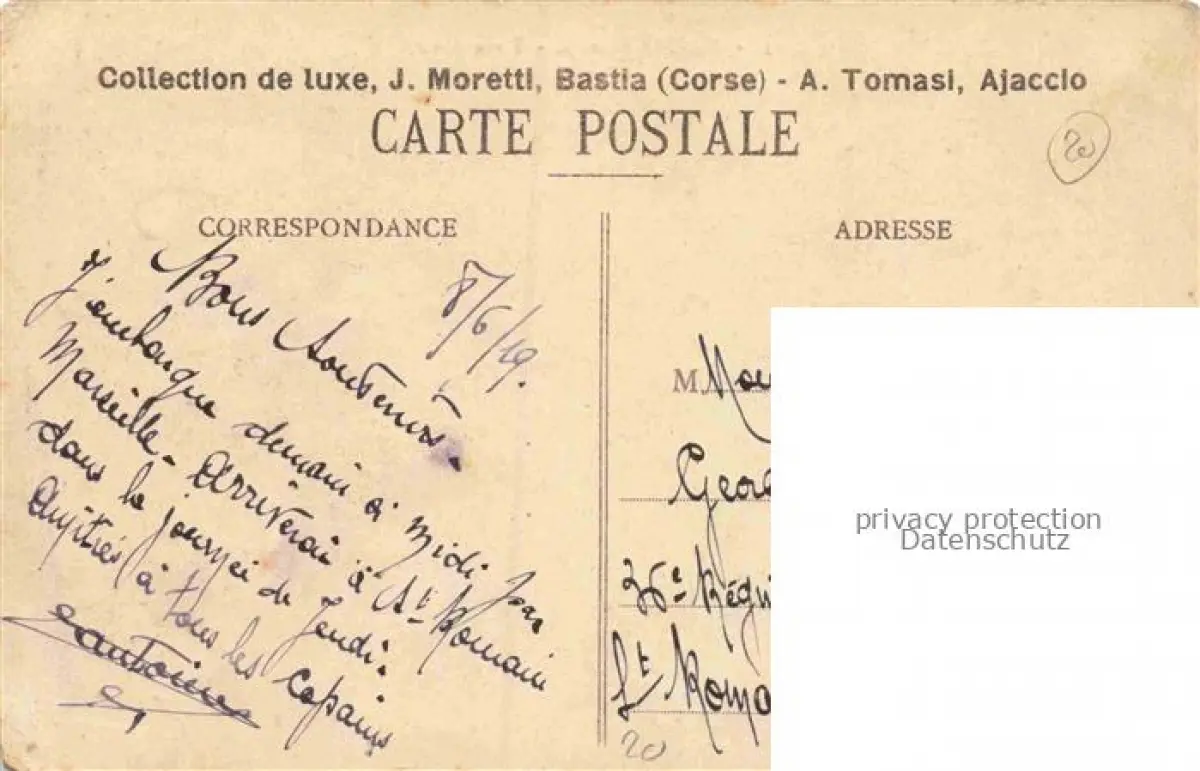 Collection de luxe, J. Moretti, Bastia (Corse) - A. Tomasi, Ajaccio
CARTE POSTALE
20
CORRESPONDANCE
8/6/19.
Bons Souvenirs.
J'embarque demain à midi par
Marseille - Arriverai à St Romain
dans la journée de Jeudi.
à tous les copains
Antoine
ADRESSE
M.
36e Régi
St Roma
20
privacy protection
Datenschutz